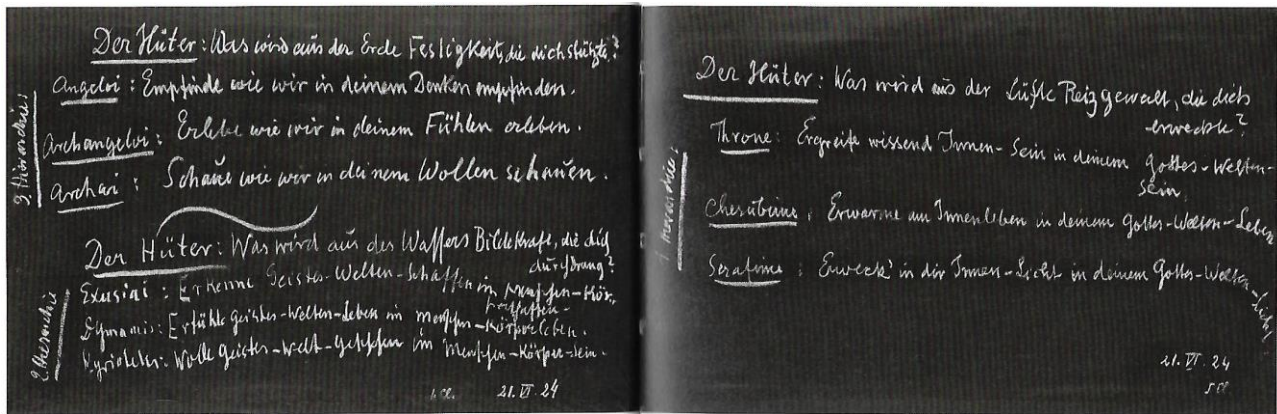 Der Hüter: Was wird aus der Erde Festigkeit, die dich stützte?
3. Hierarchie:
Angeloi: Empfinde wie wir in deinem Denken empfinden.
Archangeloi: Erlebe wie wir in deinem Fühlen erleben.
Archai: Schaue wie wir in deinem Wollen schauen.
Der Hüter: Was wird aus des Wassers Bildekraft, die dich
durchdrang?
2. Hierarchie
Exusiai: Erkenne Geistes-Welten-Schaffen im Menschen-Kör-
perschaffen.
Dynamis: Erfühle Geistes-Welten-Leben im Menschen-Körperleben.
Kyriotetes: Wolle Geistes-Welt-Geschehen im Menschen-Körper-Sein.
I. Cl. 21. VI. 24
Der Hüter: Was wird aus der Lüfte Reizgewalt, die dich
erweckte?
1. Hierarchie:
Throne: Ergreife wissend Innen-Sein in deinem Gottes-Welten-
Sein.
Cherubime: Erwarme am Innenleben in deinem Gottes-Welten-Leben
Serafime: Erweck' in dir Innen-Licht in deinem Gottes-Welten-Licht.
21. VI. 24
I Cl